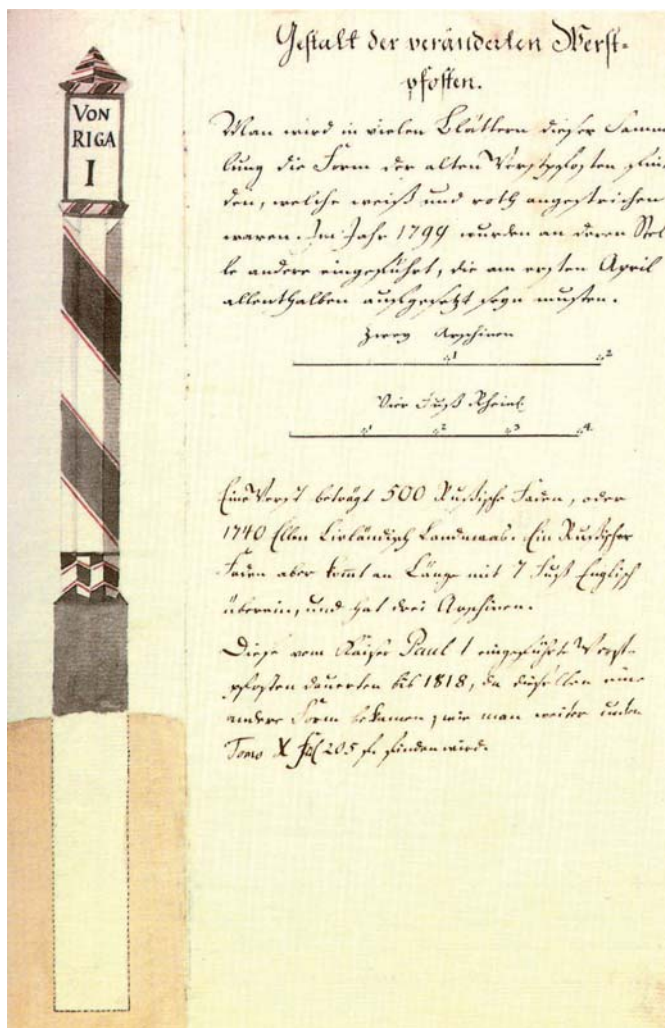 VON
RIGA
I
Gestalt der veränderten Werst-
pfosten.
Man wird in vielen Blättern dieser Samm
lung die Form der alten Werstpfosten fin-
den, welche weiß und roth angestrichen
waren. Im Jahr 1799 wurden an deren Stel-
le andere eingeführt, die am ersten April
allenthalben aufgesetzt seyn musten.
Zwey Arschinen
1 2
Vier Fuß Rheinl.
1 2 3 4
Eine Werst beträgt 500 Rußische Faden, oder
1740 Ellen Livländisch Landmaas. Ein Rußischer
Faden aber kommt an Länge mit 7 Fuß Englisch
überein, und hat drei Arschinen.
Diese vom Kaiser Paul I eingeführte Werst-
pfosten dauerten bis 1818, da dieselben eine
andere Form bekamen, wie man weiter unten
Tomo X fol 205 f. finden wird.